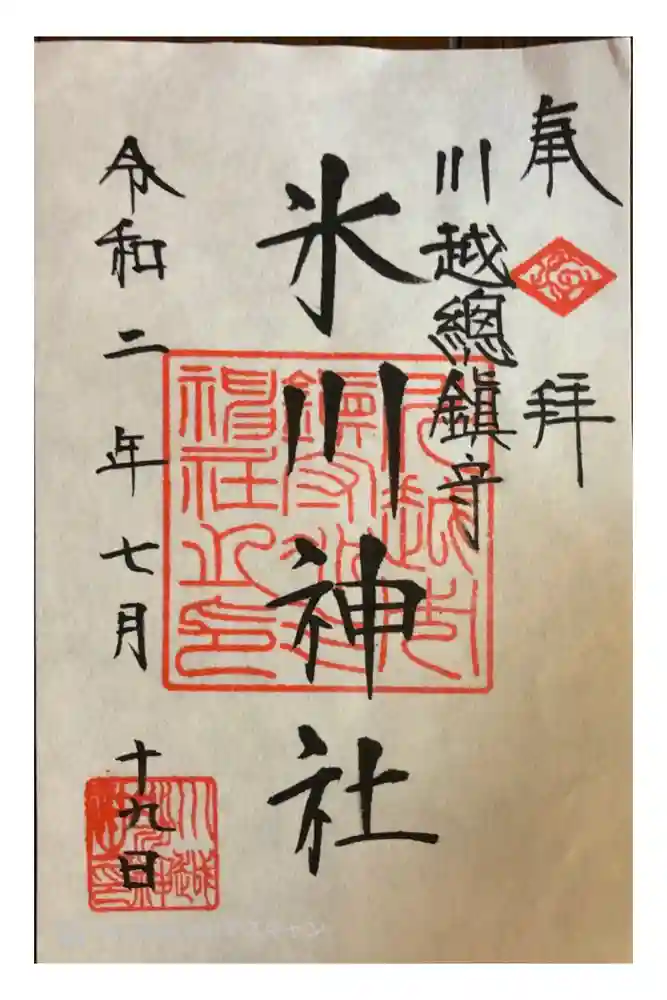 奉拝
川越總鎮守
氷川神社
令和二年七月十九日